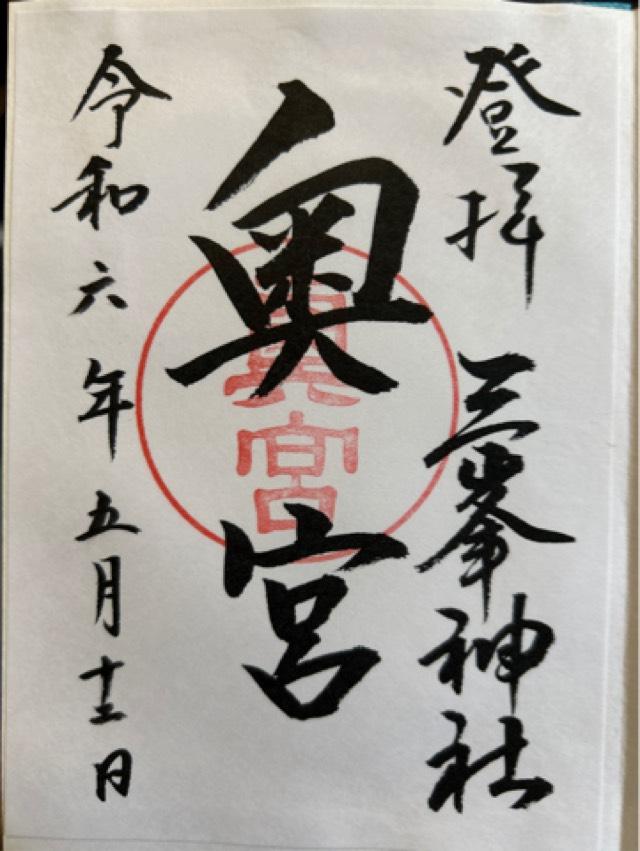 登拝 三峯神社
奥宮
奥宮
令和六年五月十二日